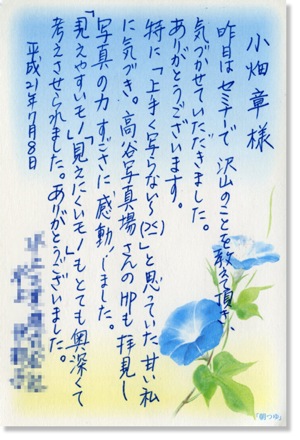 小畑章様
昨日はセミナーで沢山のことを教えて頂き、
気づかせていただきました。
ありがとうございます。
特に「上手く写らない〜(>_<)」と思っていた甘い私
に気づき。高谷写真場さんのHPも拝見し
写真の力すごさに感動しました。
「見えやすいモノ」「見えにくいモノ」もとても奥深くて
考えさせられました。ありがとうございました。
平成21年7月8日
「朝つゆ」